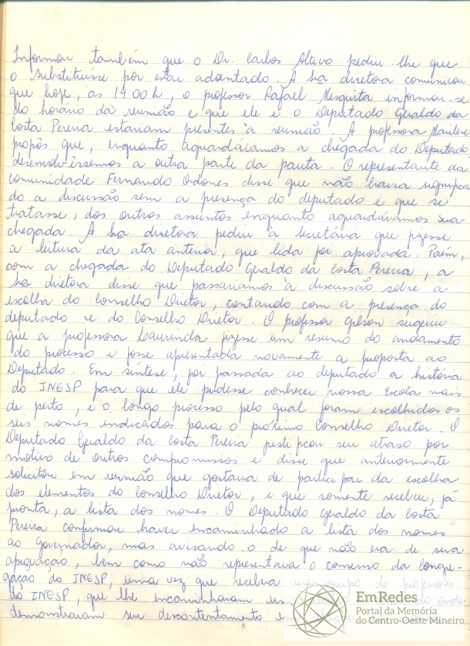 Informou também que o Dr. Carlos Altivo pediu-lhe que
o substituísse por estar adoentado. A Sra diretora comunicou
que hoje, às 14:00h, o professor Rafael Mesquita informou-se
do horário da reunião e que ele e o Deputado Geraldo da
Costa Pereira estariam presentes à reunião. A professora Marilene
propôs que, enquanto aguardávamos a chegada do Deputado,
desenvolvêssemos a outra parte da pauta. O representante da
comunidade Fernando disse que não havia
do a discussão sem a presença do deputado e que se
tratasse, dos outros assuntos enquanto aguardávamos sua
chegada. A Sra diretora pediu à secretária que fizesse
a leitura da ata anterior, que lida foi aprovada. Porém,
com a chegada do Deputado Geraldo da Costa Pereira, a
Sra diretora disse que passaríamos à discussão sobre a
escolha do Conselho Diretor, contando com a presença do
deputado e do Conselho Diretor. O professor Gelson sugeriu
que a professora Laurinda fizesse um resumo do andamento
do processo e fosse apresentada novamente a proposta ao
Deputado. Em síntese, foi passada ao deputado a história
do INESP para que ele pudesse conhecer nossa Escola mais
de perto, e o longo processo pelo qual foram escolhidos os
seis nomes indicados para o próximo Conselho Diretor. O
Deputado Geraldo da Costa Pereira justificou seu atraso por
motivo de outros compromissos e disse que anteriormente
solicitou em reunião que gostaria de participar da escolha
dos elementos do Conselho Diretor, e que somente recebeu, já
pronta, a lista dos nomes. O Deputado Geraldo da Costa
Pereira confirmou haver encaminhado a lista dos nomes
ao Governador, mas avisando-o de que não era de sua
aprovação, bem como não representava o consenso da congre-
gação do INESP, uma vez que recebera um grupo de professores
do INESP, que lhe encaminharam um
demonstraram seu descontentamento e
EmRedes
Portal da Memória
do Centro-Oeste Mineiro